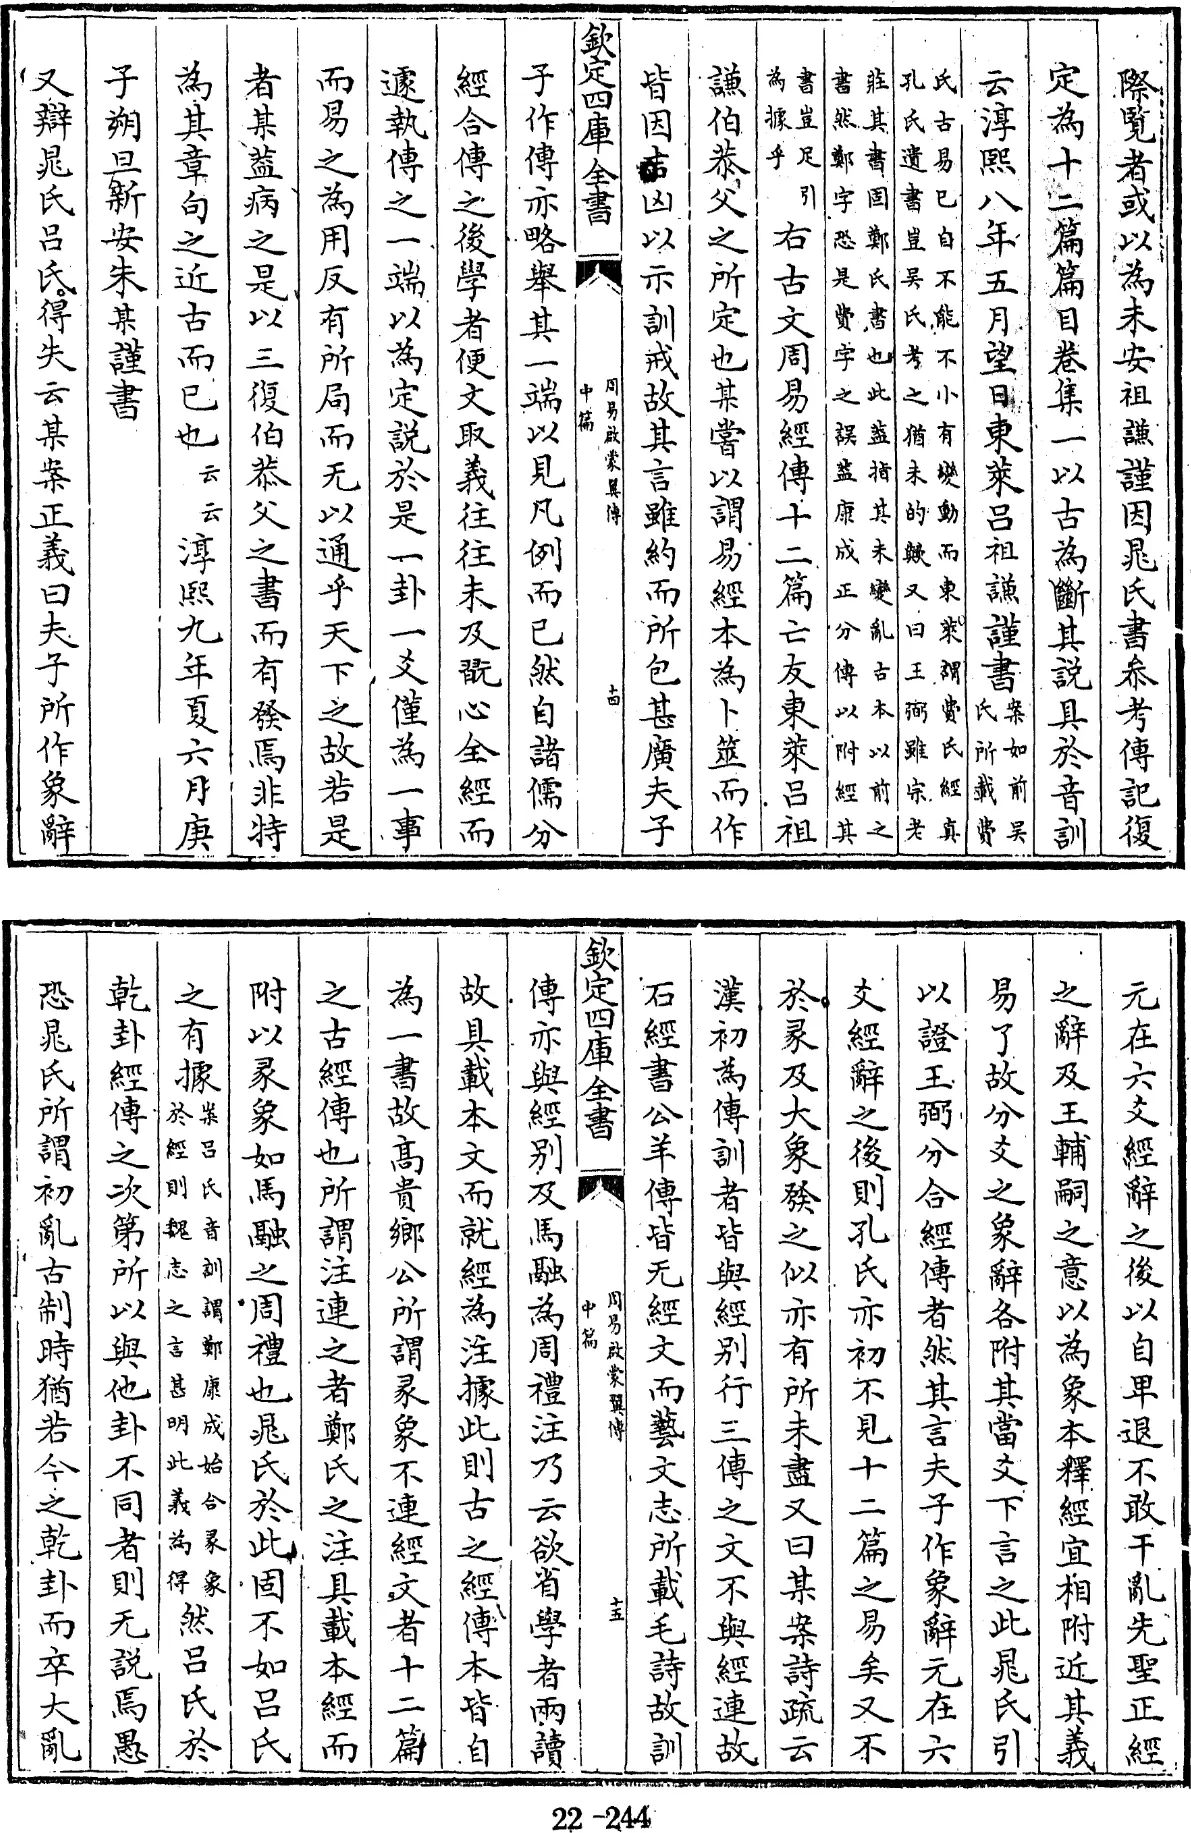 際覽者或以為未安祖謙謹因晁氏書參考傳記復
定為十二篇篇目卷集一以古為斷其說具於音訓
云淳熙八年五月望日東萊呂祖謙謹書案如前吳氏所載費
氏古易已自不能不小有變動而東萊謂費氏經真
孔氏遺書豈吳氏考之猶未的歟又曰王弼雖宗老
莊其書固鄭氏書也此葢指其未變亂古本以前之
書然鄭字恐是費字之誤葢康成正分傳以附經其
書豈足引
為據乎
右古文周易經傳十二篇亡友東萊呂祖
謙伯恭父之所定也某嘗以謂易經本為卜筮而作
皆因吉凶以示訓戒故其言雖約而所包甚廣夫子
欽定四庫全書
周易啟蒙翼傳
中篇
十四
子作傳亦略舉其一端以見凡例而已然自諸儒分
經合傳之後學者便文取義往往未及翫心全經而
遽執傳之一端以為定說於是一卦一爻僅為一事
而易之為用反有所局而无以通乎天下之故若是
者某葢病之是以三復伯恭父之書而有發焉非特
為其章句之近古而已也云云淳熙九年夏六月庚
子朔旦新安朱某謹書
又辯晁氏呂氏得失云某案正義曰夫子所作象辭
元在六爻經辭之後以自卑退不敢干亂先聖正經
之辭及王輔嗣之意以為象本釋經宜相附近其義
易了故分爻之象辭各附其當爻下言之此晁氏引
以證王弼分合經傳者然其言夫子作象辭元在六
爻經辭之後則孔氏亦初不見十二篇之易矣又不
於彖及大象發之似亦有所未盡又曰某案詩疏云
漢初為傳訓者皆與經別行三傳之文不與經連故
石經書公羊傳皆无經文而藝文志所載毛詩故訓
欽定四庫全書
周易啟蒙翼傳
中篇
十五
傳亦與經別及馬融為周禮注乃云欲省學者兩讀
故具載本文而就經為注據此則古之經傳本皆自
為一書故高貴鄉公所謂彖象不連經文者十二篇
之古經傳也所謂注連之者鄭氏之注具載本經而
附以彖象如馬融之周禮也晁氏於此固不如呂氏
之有據案呂氏音訓謂鄭康成始合彖象於經則魏志之言甚明此義為得然呂氏於
乾卦經傳之次第所以與他卦不同者則无說焉愚
恐晁氏所謂初亂古制時猶若今之乾卦而卒大亂
22-244